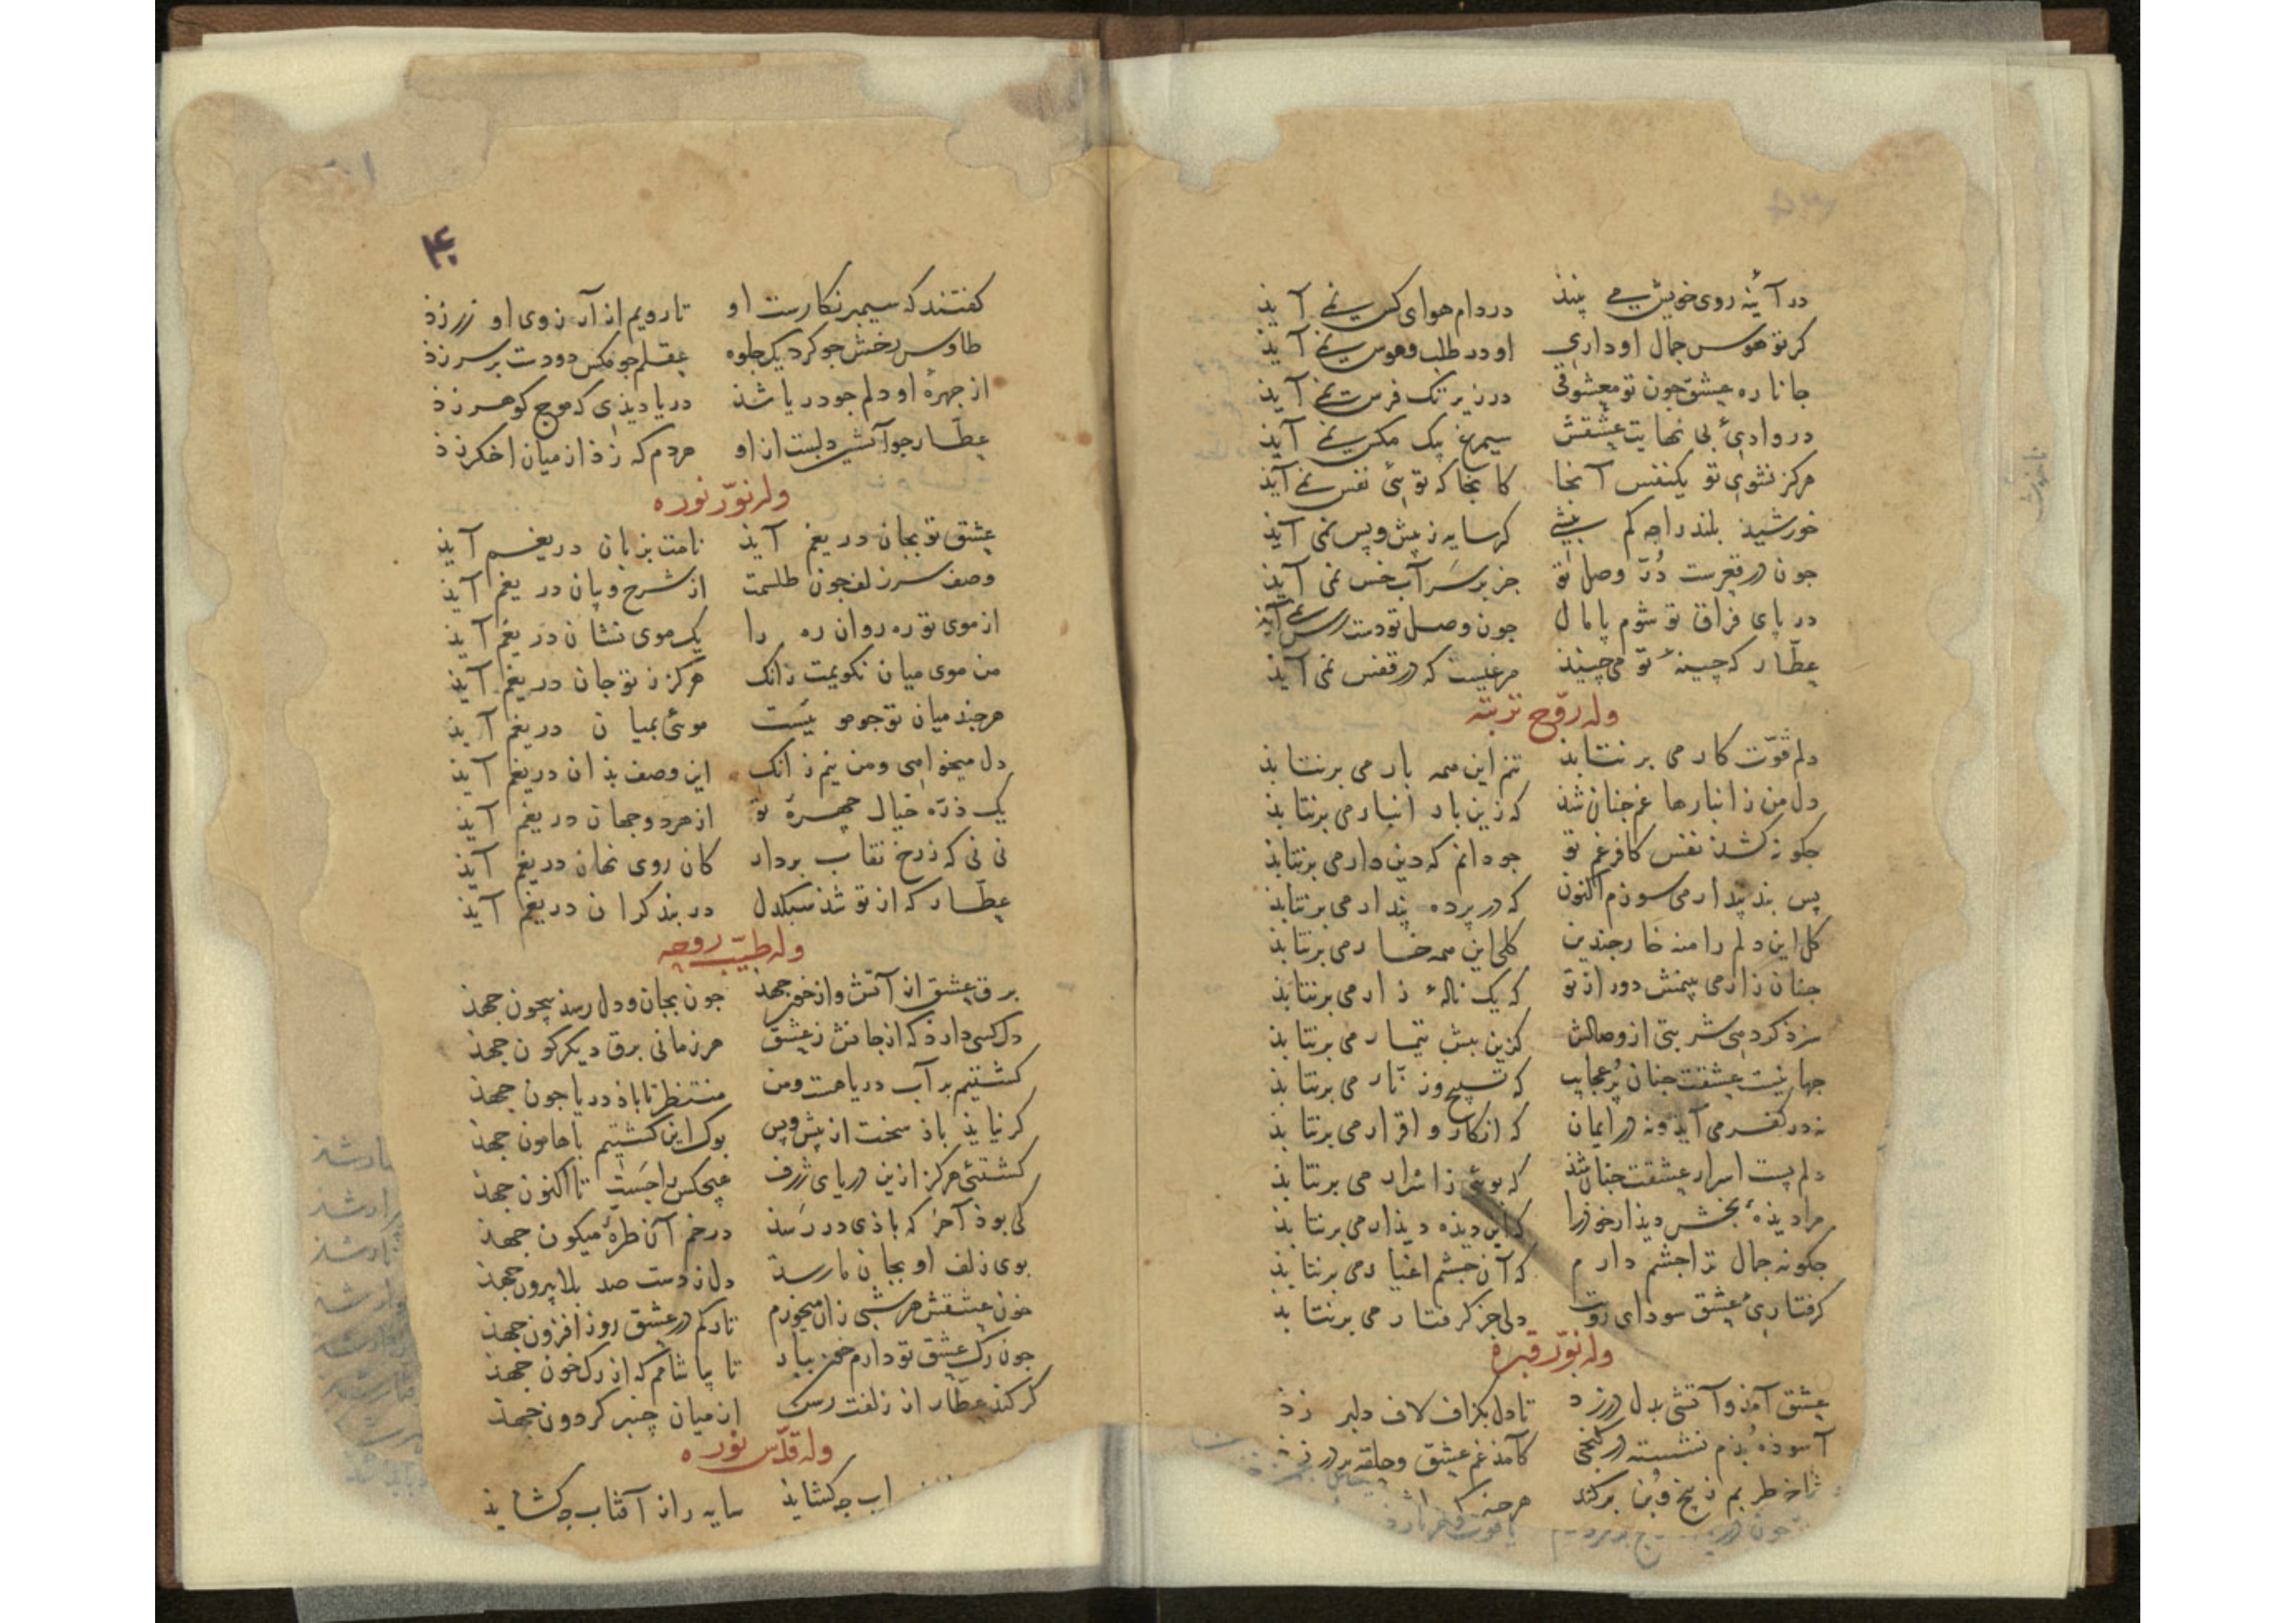 در آئینه روی خویش می بیند در دام هوای کس نمی آید
کر تو هوس جمال او داری او در طلب و هوس نمی آید
جانا ره عشق جون تو معشوقی در زیر تک فرس نمی آید
در وادئ بی نهایت عشقش سیمرغ یک مکس نمی آید
هرکز نشوی تو یکنفس آنجا کانجا که توئی نفس نمی آید
خورشید بلند را جه کم بینی کر سایه ز پیش و پس نمی آید
جون در قعرست دُرّ وصل تو جز بر سَر آب خس نمی آید
در پای فراق تو شوم پامال جون وصل تو دست رس نمی آید
عطّار که چینهٔ تو می چیند مرغیست که در قفس نمی آید
وله روّح تربته
دلم قوّت کار می برنتابد تنم این همه بار می برنتابد
دل من ز انبارها غم جنان شذ که زین بار انبار می برنتابد
جکونه کشذ نفس کافر غم تو جو دانم که دین دار می برنتابد
پس بند پندار می سوزم اکنون که در پرده پندار می برنتابد
کل این دلم را منه خار جندین کلی این همه خار می برنتابد
جنان زار می بینمش دور از تو که یک نالهٔ زار می برنتابد
سزد کر دهی شربتی از وصالش کزین بیش تیمار می برنتابد
جهانیست عشقت جنان پُر عجایب که تسبیح و زنّار می برنتابد
نه در کفر می آید و نه در ایمان که انکار و اقرار می برنتابد
دلم پست اسرار عشقت جنان شذ که بوئی ز اسرار می برنتابد
مرا دیذهٔ بخش دیذار خوذ را که این دیذه دیذار می برنتابد
جکونه جمال ترا جشم دارم که آن جشم اغیار می برنتابد
کرفتاری عشق سودای رویت دلی جز کرفتار می برنتابد
وله نوّر قبره
عشق آمذ و آتشی بدل در زد تا دل بکزاف لاف دلبر زذ
آسوذه بُذم نشسته در کنجی کامذ غم عشق و حلقه بر در زذ
شاخ طربم ز بیخ و بُن برکند هرجند که
۴۰
کفتند که سیمبر نکارست او تا رویم از آرزوی او زر زذ
طاوس رخش جو کرد یک جلوه عقلم جو مکس دو دست بر سر زذ
از جهرهٔ او دلم جو دریا شذ دریا دیذی که موج کوهر زذ
عطّار جو آتشین دلست از او هر دم که زذ از میان اخکر زذ
وله نوّر نوره
عشق تو بجان دریغم آیذ نامت بزبان دریغم آیذ
وصف سر زلف جون طلسمت از شرح و بیان دریغم آیذ
از موی تو ره روان ره را یک موی نشان دریغم آیذ
من موی میان نکویمت زانک هرکز ز تو جان دریغم آیذ
هرجند میان تو جو مو یست موئی بمیان دریغم آیذ
دل میخواهی و من نیم زانک این وصف بذان دریغم آیذ
یک ذرّه خیال جهرهٔ تو از هر دو جهان دریغم آیذ
نی نی که ز رخ نقاب بردار کان روی نهان دریغم آیذ
عطّار که از تو شذ سبکدل در بند کران دریغم آیذ
وله طیّب روحه
برق عشق از آتش و از خون جهذ جون بجان و دل رسذ بیجون جهذ
دل کسی دارد که از جانش ز عشق هر زمانی برق دیکرکون جهذ
کشتیم بر آب دریا هست و من منتظر تا باذ دریا جون جهذ
کر نیایذ باذ سخت از پیش و پس بوک این کشتیم با هامون جهذ
کشتئی هرکز ازین دریای ژرف هیچکس را جَست تا اکنون جهذ
کی بوذ آخر که باذی در رسذ در خم آن طرهٔ میکون جهذ
بوی زلف او بجان ما رسذ دل ز دست صد بلا بیرون جهذ
خون عشقش هر شبی زان میخورم تا رکم در عشق روز افزون جهذ
جون رک عشق تو دارم خون بیار تا بیاشامم که از رک خون جهذ
کر کند عطّار از زلفت رسن از میان چنبر کردون جهذ
وله قدّس نوره
اب جه کشایذ سایه را از آفتاب جه کشایذ